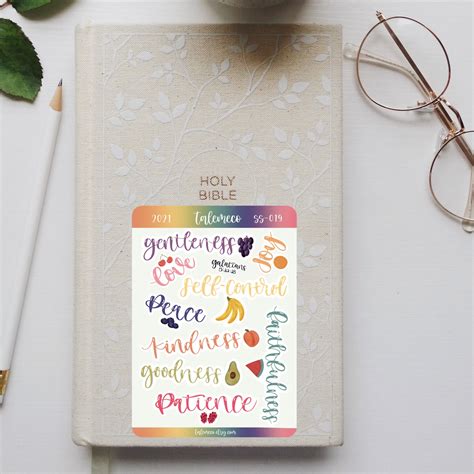 HOLY
BIBLE
2021 talemeco SS-019
gentleness
joy
love
galatians
5:22-23
self-control
Peace
Kindness
faithfulness
goodness
Patience
talemeco.etsy.com